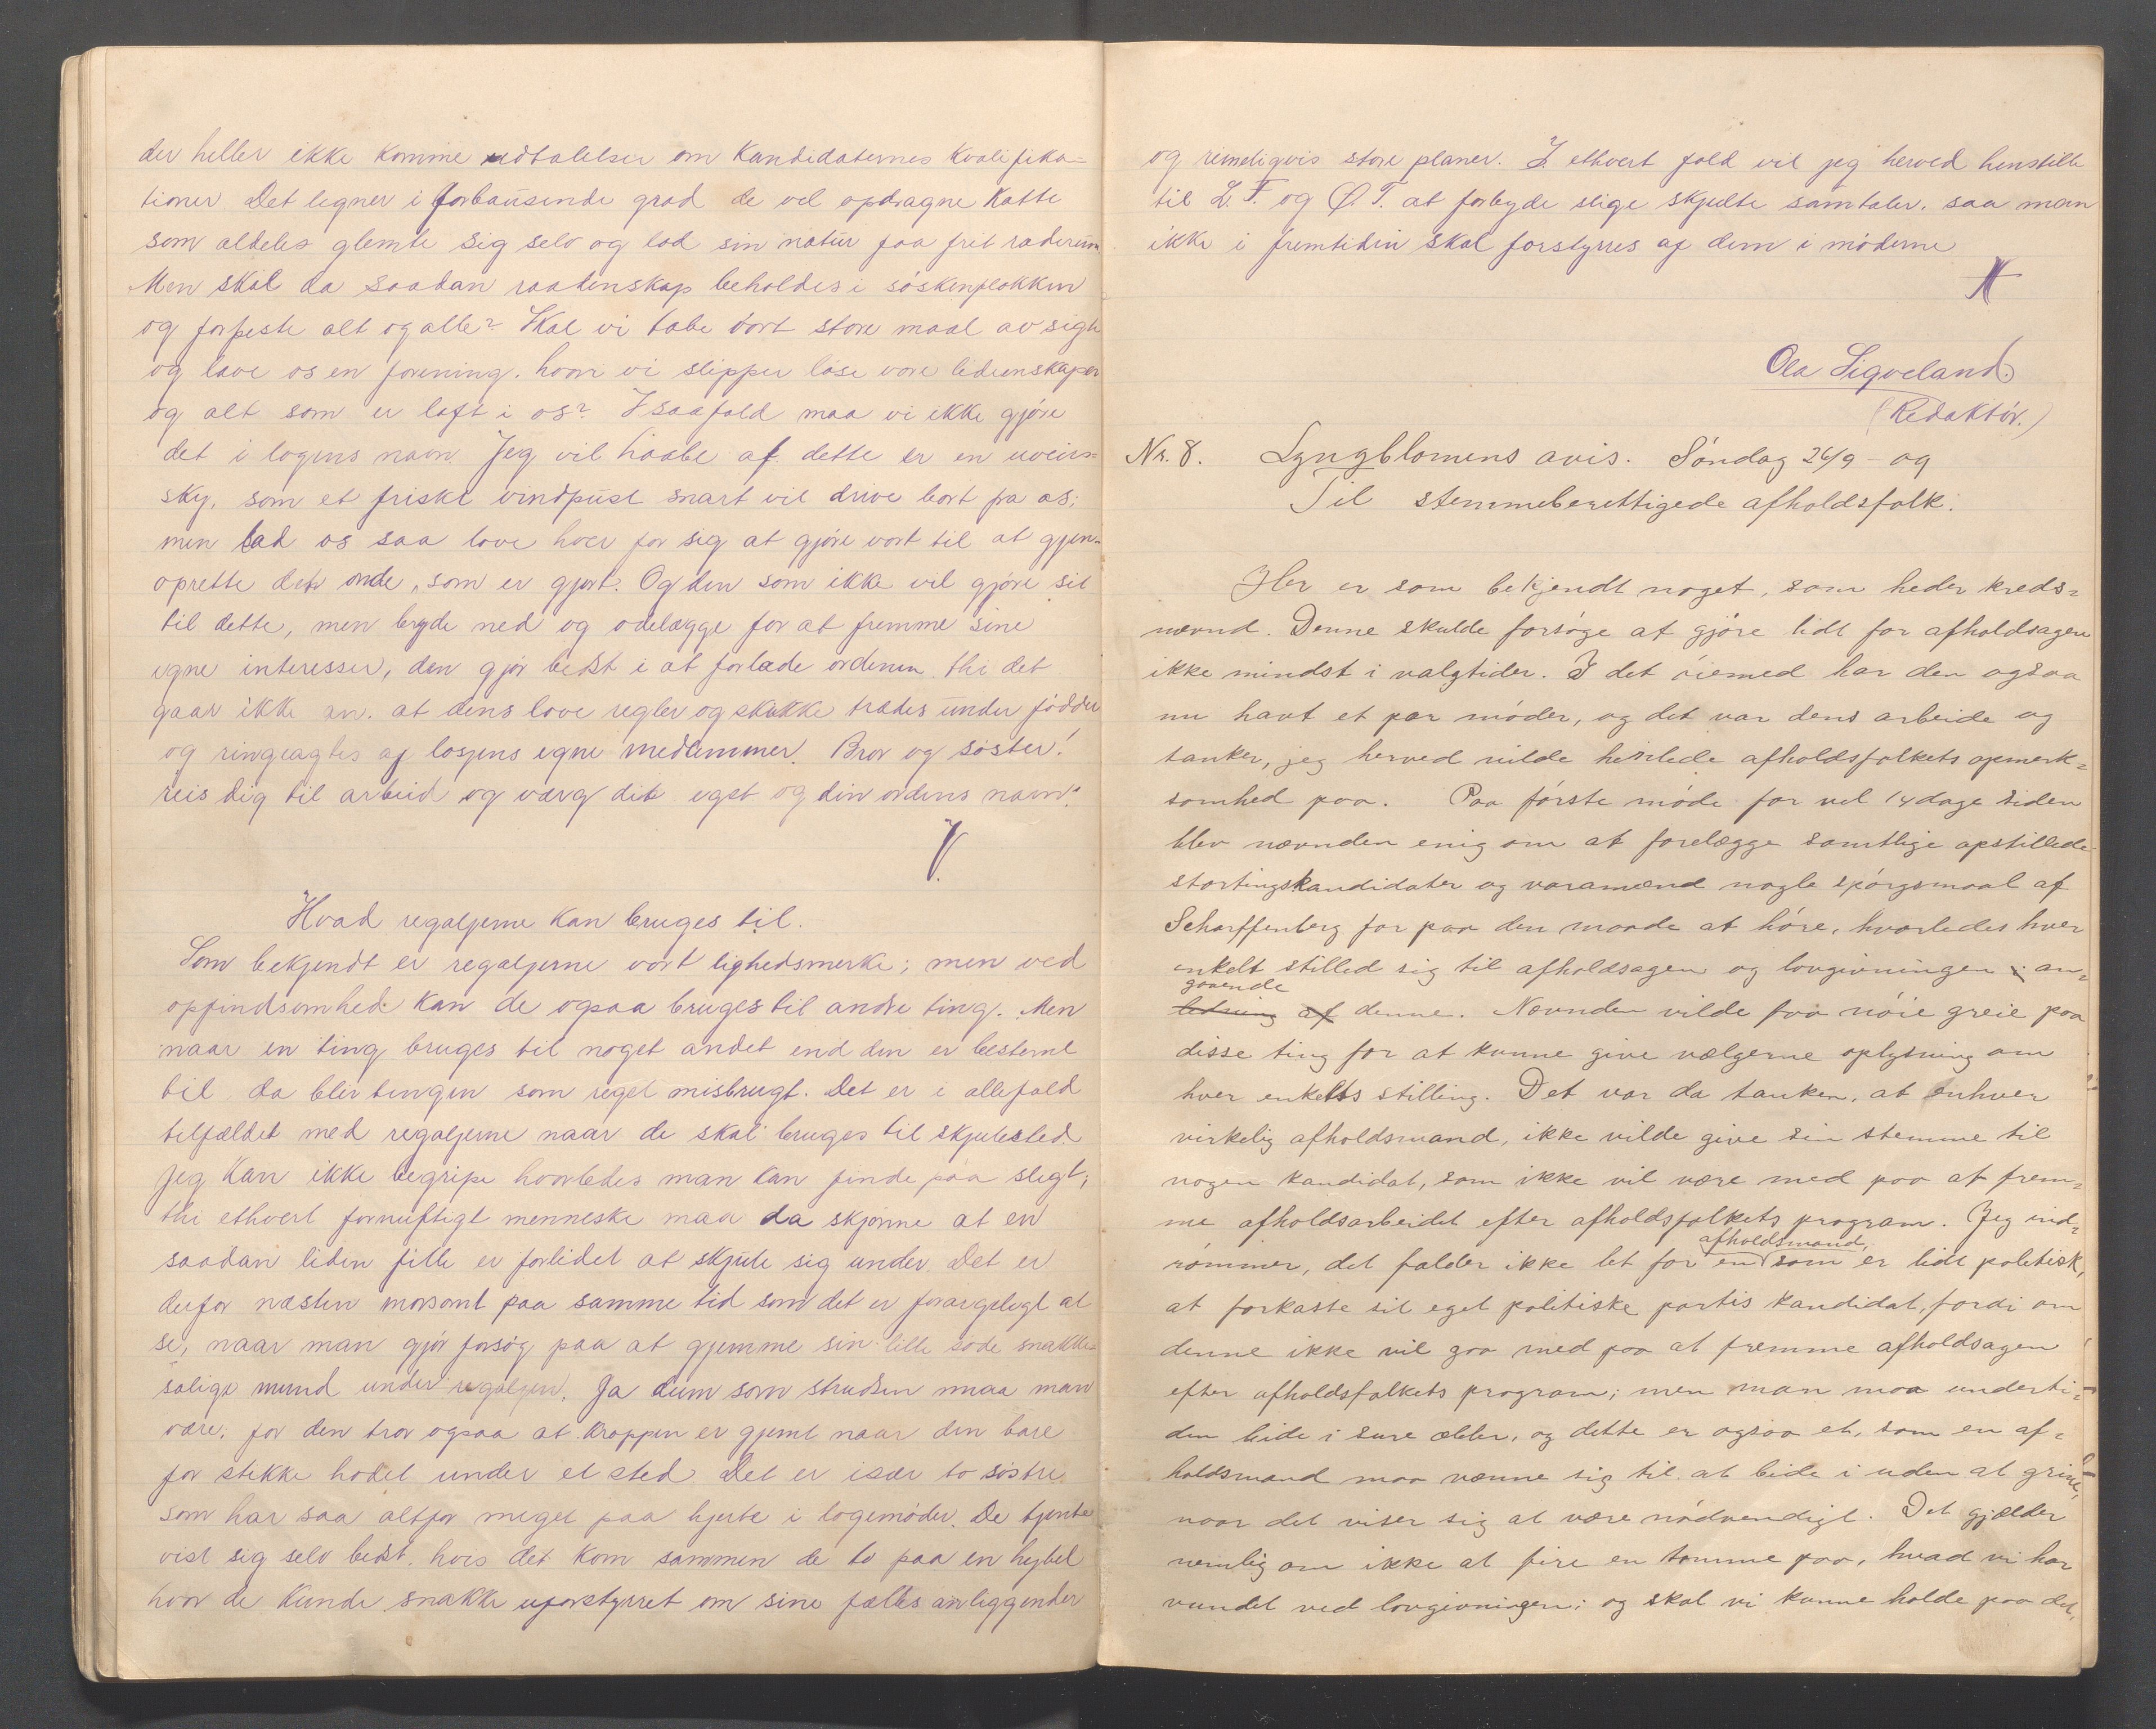 der heller ikke komme udtalelser om kandidaternes kvalifika=
tioner. Det ligner i forbausende grad de vel opdragne katte
som aldeles glemte sig selv og lod sin natur faa frit raderum.
Men skal da saadan raatenskap beholdes i søskenflokken
og forpeste alt og alle? Skal vi tabe vort store maal av sigte
og lave os en forening, hvor vi slipper løse vore lidenskaper
og alt som er laft i os? I saafald maa vi ikke gjøre
det i logens navn. Jeg vil haabe at dette er en uveirs=
sky, som et friskt vindpust snart vil drive bort fra os;
men lad os saa love hver for sig at gjøre vort til at gjen=
oprette det onde, som er gjort. Og den som ikke vil gjøre sit
til dette, men bryde ned og ødelægge for at fremme sine
egne interesser, den gjør bedst i at forlade ordenen, thi det
gaar ikke an, at dens love regler og skikke trædes under fødder
og ringeagtes af losjens egne medlemmer. Bror og søster!
reis dig til arbeid og værg dit eget og din ordens navn!
V.
Hvad regaljerne kan bruges til.
Som bekjendt er regaljerne vort lighedsmerke; men ved
opfindsomhed kan de ogsaa bruges til andre ting. Men
naar en ting bruges til noget andet end den er bestemt
til, da blir tingen som regel misbrugt. Det er i allefald
tilfældet med regaljerne naar de skal bruges til skjulested
Jeg kan ikke begripe hvorledes man kan finde paa sligt;
thi ethvert fornuftigt menneske maa da skjønne at en
saadan liden fille er forlidet at skjule sig under. Det er
derfor næsten morsomt paa samme tid som det er forargeligt at
se, naar man gjør forsøg paa at gjemme sin lille søde snakke=
salige mund under regaljen. Ja dum som strudsen maa man
være; for den tror ogsaa at kroppen er gjemt naar den bare
for stikke hodet under et sted. Det er især to søstre
som har saa altfor meget paa hjerte i logemøder. De tjente
vist sig selv bedst, hvis det kom sammen de to paa en hybel
hvor de kunde snakke uforstyrret om sine fælles anliggender
og rimeligvis store planer. I ethvert fald vil jeg herved henstille
til L. T. og Ø. T. at forbyde slige skjulte samtaler, saa man
ikke i fremtiden skal forstyrres af dem i møderne
Ola Sigveland.
(Redaktør.)
Nr. 8. Lyngblomens avis. Søndag 26/9 - 09
Til stemmeberettigede afholdsfolk.
Her er som bekjendt noget, som heder kreds=
nævnd. Denne skulde forsøge at gjøre lidt for afholdsagen
ikke mindst i valgtider. I det øiemed har den ogsaa
nu havt et par møder, og det var dens arbeide og
tanker, jeg herved vilde henlede afholdsfolkets opmerk=
somhed paa. Paa første møde for vel 14 dage siden
blev nævnden enig om at forelægge samtlige opstillede
stortingskandidater og varamænd nogle spørgsmaal af
Scharffenberg for paa den maade at høre, hvorledes hver
enkelt stilled sig til afholdsagen og lovgivningen i an=
gaaende
ledning af denne. Nævnden vilde faa nøie greie paa
disse ting for at kunne give vælgerne oplysning om
hver enkelts stilling. Det var da tanken, at enhver
virkelig afholdsmand, ikke vilde give sin stemme til
nogen kandidat, som ikke vil være med paa at frem=
me afholdsarbeidet efter afholdsfolkets program. Jeg ind=
afholdsmand,
rømmer, det falder ikke let for en som er lidt politisk,
at forkaste sit eget politiske partis kandidat, fordi om
denne ikke vil gaa med paa at fremme afholdsagen
efter afholdsfolkets program; men man maa underti=
den bide i sure æbler, og dette er ogsaa et, som en af=
holdsmand maa vænne sig til at bide i uden at grine,
naar det viser sig at være nødvendigt. Det gjælder
nemlig om ikke at fire en tomme paa, hvad vi har
vundet ved lovgivningen; og skal vi kunne holde paa det,